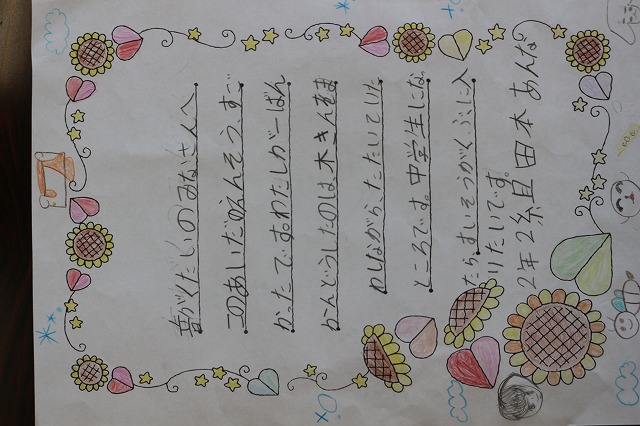 音がくたいのみなさんへ
このあいだのえんそう、すご
かったです。わたしが一ばん
かんどうしたのは木きんをま
わしながら、たたいていた
ところです。中学生にな
たら、すいそうがくぶに入
りたいです。
2年2組 田本 あんな